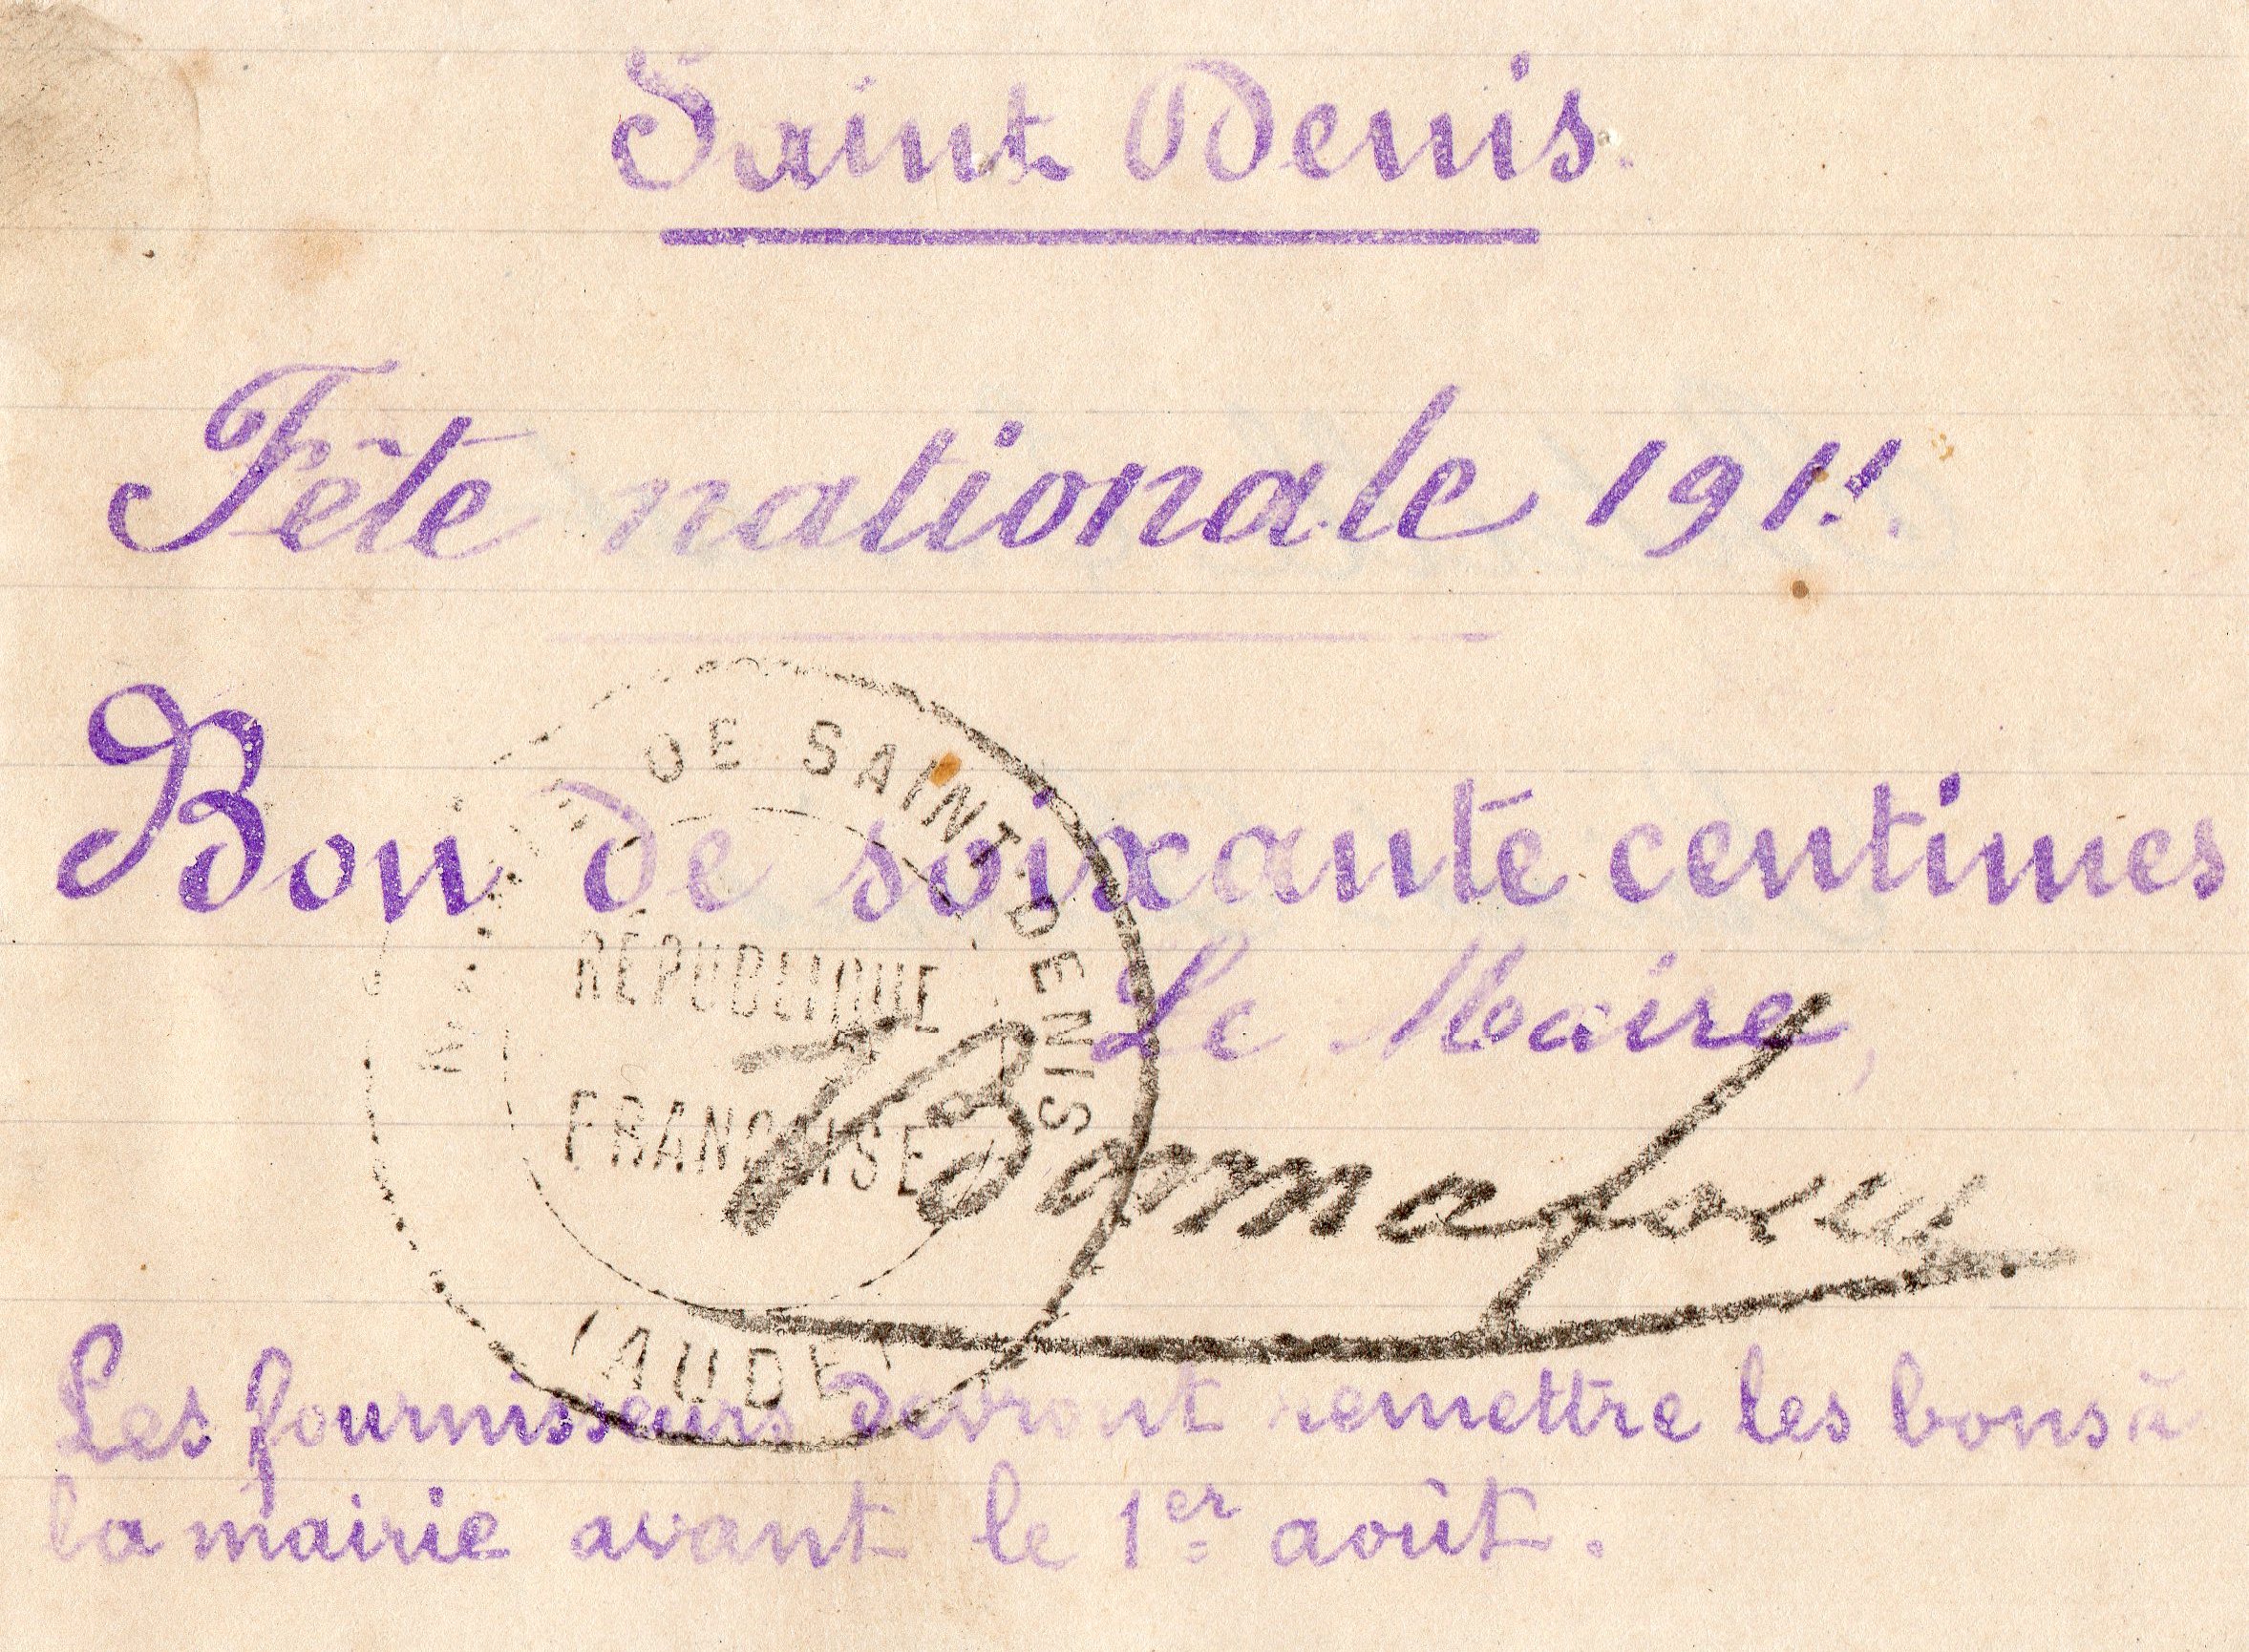 Saint Denis.
Fête nationale 1911.
Bon de soixante centimes
DE SAINT DENIS
RÉPUBLIQUE
FRANÇAISE
(AUDE)
Le Maire,
Les fournisseurs devront remettre les bons à
la mairie avant le 1er août.